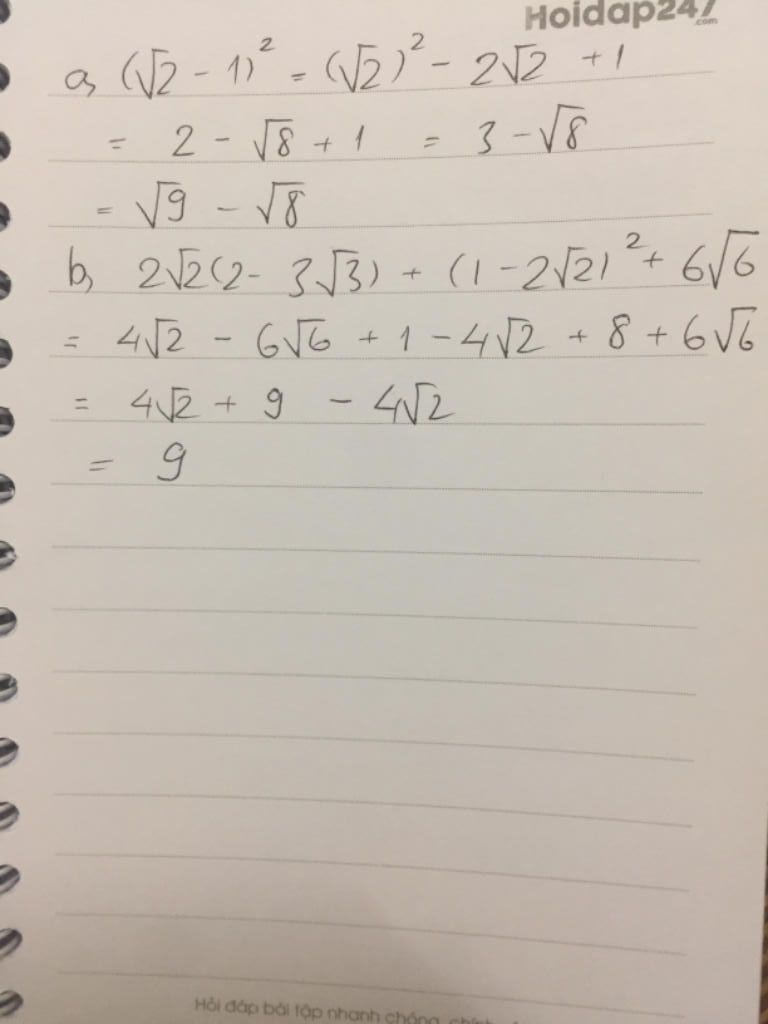 Hoidap247
.com
a, (√2 - 1)² = (√2)² - 2√2 + 1
= 2 - √8 + 1 = 3 - √8
= √9 - √8
b, 2√2(2 - 3√3) + (1 - 2√2)² + 6√6
= 4√2 - 6√6 + 1 - 4√2 + 8 + 6√6
= 4√2 + 9 - 4√2
= 9
Hỏi đáp bài tập nhanh chóng,